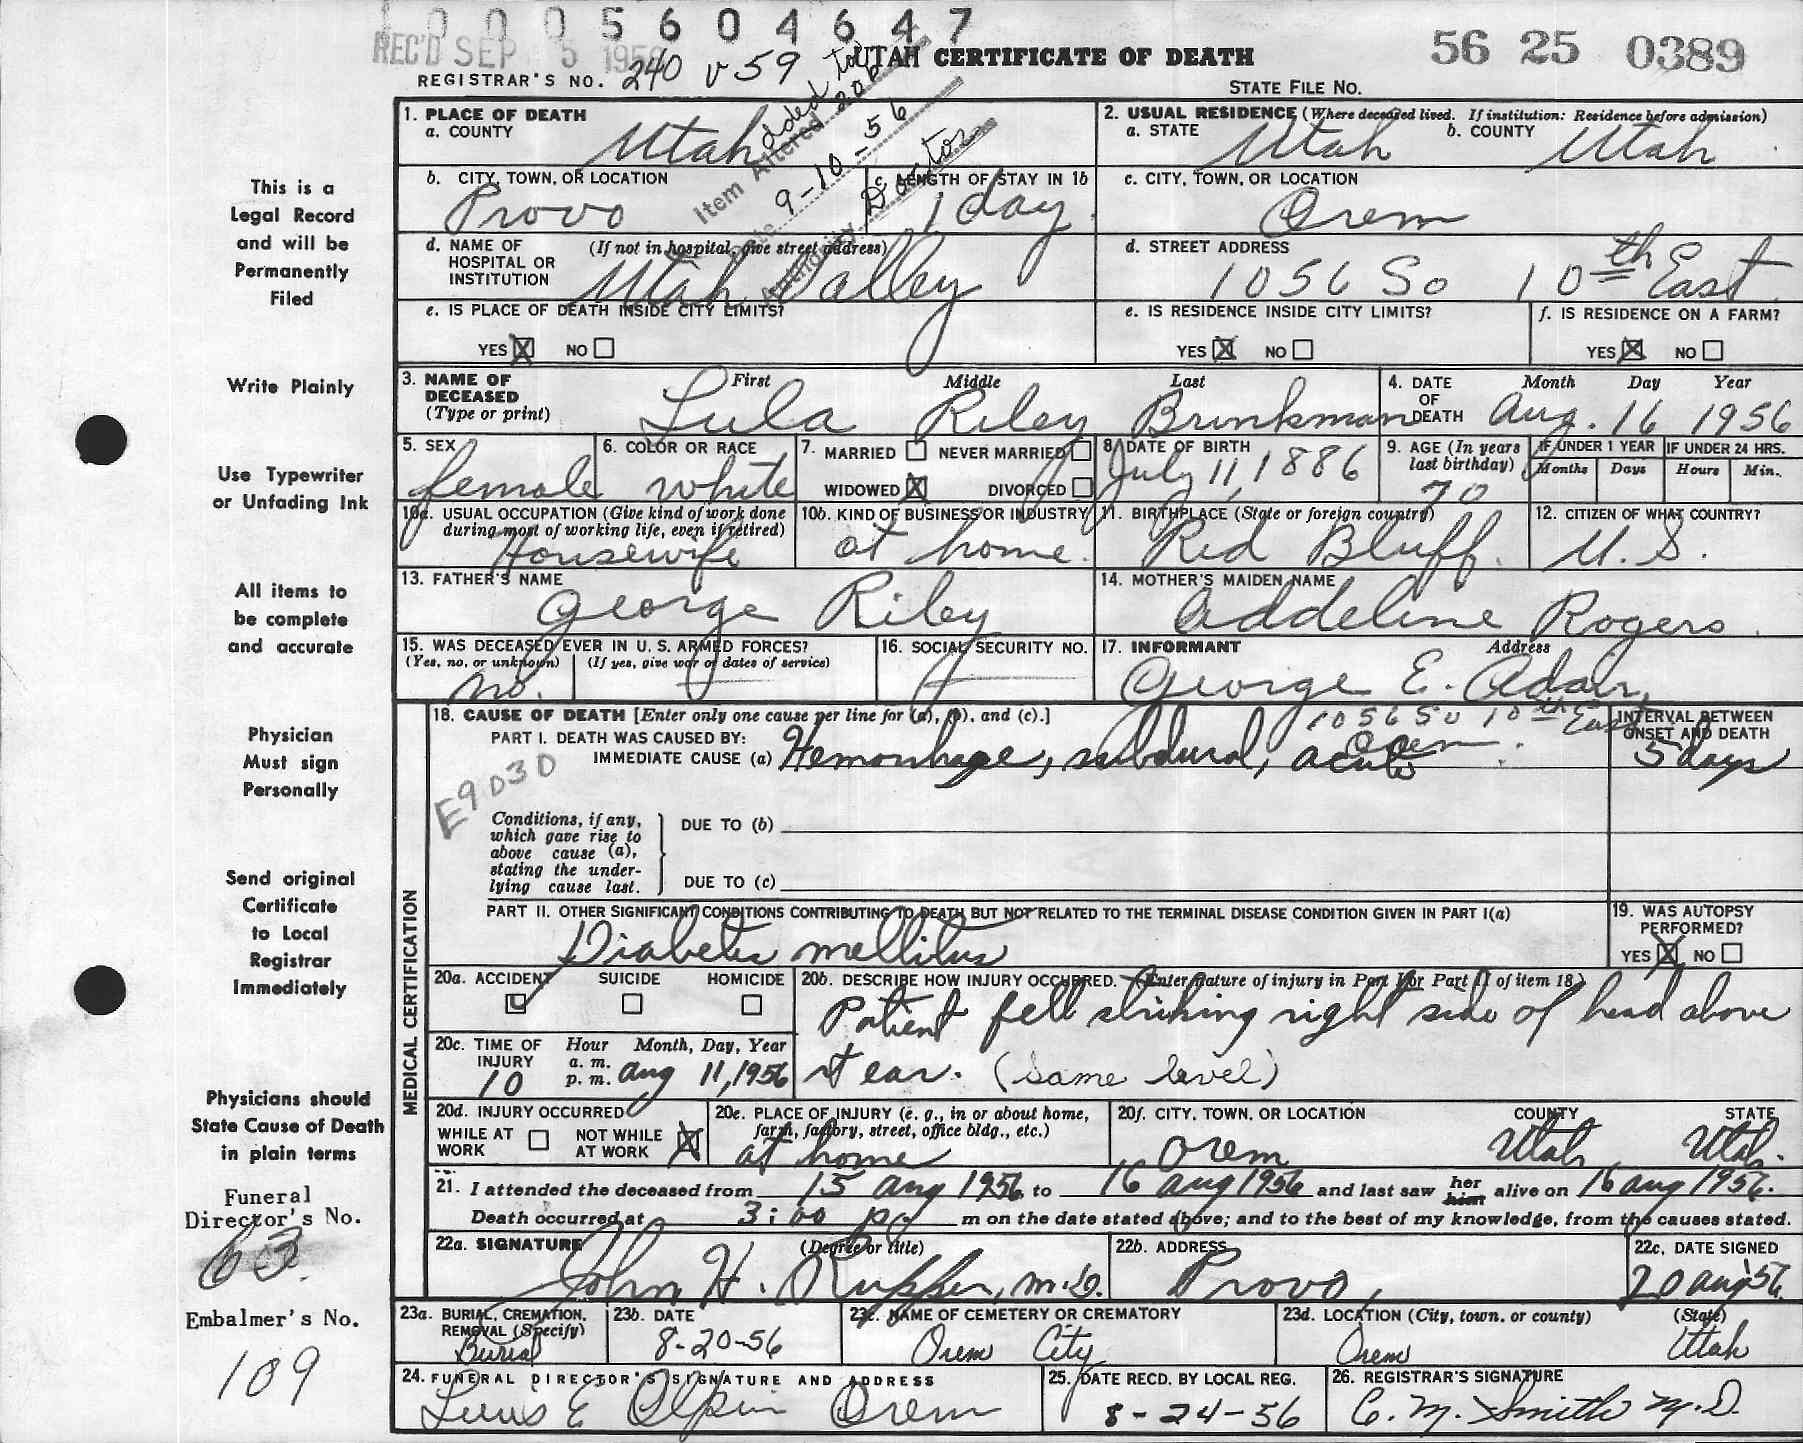 1 0 0 0 5 6 0 4 6 4 7
REC'D SEP 5 1956
UTAH CERTIFICATE OF DEATH
56 25 0389
REGISTRAR'S NO. 240 v 59
STATE FILE NO.
Item Altered 20b
Date 9-10-56
Authority Doctor
This is a
Legal Record
and will be
Permanently
Filed
Write Plainly
Use Typewriter
or Unfading Ink
All items to
be complete
and accurate
Physician
Must sign
Personally
Send original
Certificate
to Local
Registrar
Immediately
Physicians should
State Cause of Death
in plain terms
Funeral
Director's No.
63
Embalmer's No.
109
1. PLACE OF DEATH
a. COUNTY Utah
2. USUAL RESIDENCE (Where deceased lived. If institution: Residence before admission)
a. STATE Utah b. COUNTY Utah
b. CITY, TOWN, OR LOCATION Provo
c. LENGTH OF STAY IN 1b 1 day
c. CITY, TOWN, OR LOCATION Orem
d. NAME OF HOSPITAL OR INSTITUTION (If not in hospital, give street address) Utah Valley
d. STREET ADDRESS 1056 So 10th East
e. IS PLACE OF DEATH INSIDE CITY LIMITS?
YES X NO
e. IS RESIDENCE INSIDE CITY LIMITS?
YES X NO
f. IS RESIDENCE ON A FARM?
YES X NO
3. NAME OF DECEASED (Type or print) First Middle Last
Lula Riley Brinkman
4. DATE OF DEATH Month Day Year
Aug. 16 1956
5. SEX female
6. COLOR OR RACE white
7. MARRIED NEVER MARRIED
WIDOWED X DIVORCED
8. DATE OF BIRTH July 11, 1886
9. AGE (In years last birthday) 70
IF UNDER 1 YEAR Months Days
IF UNDER 24 HRS. Hours Min.
10a. USUAL OCCUPATION (Give kind of work done during most of working life, even if retired) Housewife
10b. KIND OF BUSINESS OR INDUSTRY at home.
11. BIRTHPLACE (State or foreign country) Red Bluff.
12. CITIZEN OF WHAT COUNTRY? U.S.
13. FATHER'S NAME George Riley
14. MOTHER'S MAIDEN NAME Addeline Rogers
15. WAS DECEASED EVER IN U. S. ARMED FORCES?
(Yes, no, or unknown) (If yes, give war or dates of service)
no.
16. SOCIAL SECURITY NO.
17. INFORMANT Address
George E. Adair,
1056 So 10th East
Orem.
18. CAUSE OF DEATH [Enter only one cause per line for (a), (b), and (c).]
PART I. DEATH WAS CAUSED BY:
IMMEDIATE CAUSE (a) Hemorrhage, subdural, acute
INTERVAL BETWEEN ONSET AND DEATH
5 days
E9030
Conditions, if any, which gave rise to above cause (a), stating the underlying cause last.
DUE TO (b)
DUE TO (c)
PART II. OTHER SIGNIFICANT CONDITIONS CONTRIBUTING TO DEATH BUT NOT RELATED TO THE TERMINAL DISEASE CONDITION GIVEN IN PART I(a)
Diabetes mellitus
19. WAS AUTOPSY PERFORMED?
YES X NO
MEDICAL CERTIFICATION
20a. ACCIDENT SUICIDE HOMICIDE
20b. DESCRIBE HOW INJURY OCCURRED. (Enter nature of injury in Part I or Part II of item 18)
Patient fell striking right side of head above
rt ear. (same level)
20c. TIME OF INJURY Hour a. m. p. m. Month, Day, Year
10 Aug 11, 1956
20d. INJURY OCCURRED
WHILE AT WORK NOT WHILE AT WORK X
20e. PLACE OF INJURY (e. g., in or about home, farm, factory, street, office bldg., etc.)
at home
20f. CITY, TOWN, OR LOCATION COUNTY STATE
Orem Utah Utah.
21. I attended the deceased from 15 Aug 1956 to 16 Aug 1956 and last saw her him alive on 16 Aug 1956.
Death occurred at 3:00 p m on the date stated above; and to the best of my knowledge, from the causes stated.
22a. SIGNATURE (Degree or title)
John H. Rupper, M.D.
22b. ADDRESS Provo,
22c. DATE SIGNED 20 Aug 56
23a. BURIAL, CREMATION, REMOVAL (Specify) Burial
23b. DATE 8-20-56
23c. NAME OF CEMETERY OR CREMATORY Orem City
23d. LOCATION (City, town, or county) (State)
Orem Utah
24. FUNERAL DIRECTOR'S SIGNATURE AND ADDRESS
E Olpin Orem
25. DATE RECD. BY LOCAL REG.
8-24-56
26. REGISTRAR'S SIGNATURE
C. M. Smith M.D.